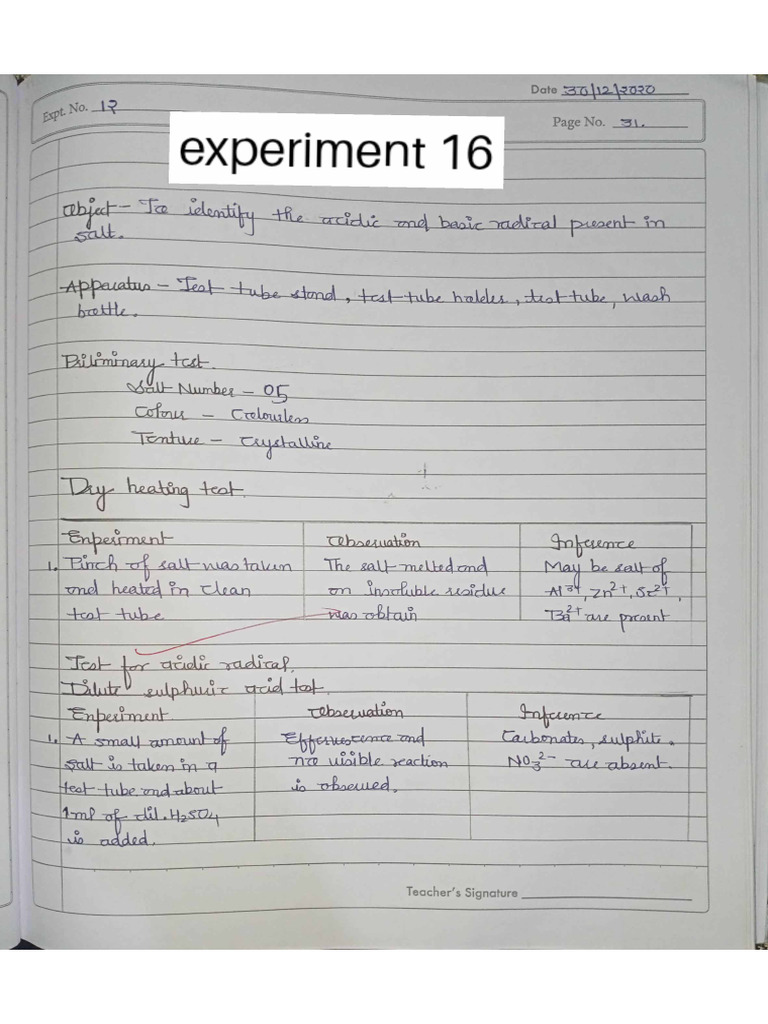 Date 30/12/2020
Expt. No. 12
Page No. 31.
experiment 16
Object - To identify the acidic and basic radical present in
salt.
Apparatus - Test tube stand, test tube holder, test tube, wash
bottle.
Priliminary test.
Salt Number - 05
Colour - Colourless
Texture - Crystalline
Dry heating test.
Experiment Observation Inference
1. Pinch of salt was taken The salt melted and May be salt of
and heated in clean an insoluble residue Al3+, Zn2+, Sr2+,
test tube was obtain Ba2+ are present
Test for acidic radical.
Dilute sulphuric acid test.
Experiment Observation Inference
1. A small amount of Effervescence and Carbonates, sulphite.
salt is taken in a no visible reaction NO3 2- are absent.
test tube and about is observed.
1ml of dil. H2SO4
is added.
Teacher's Signature